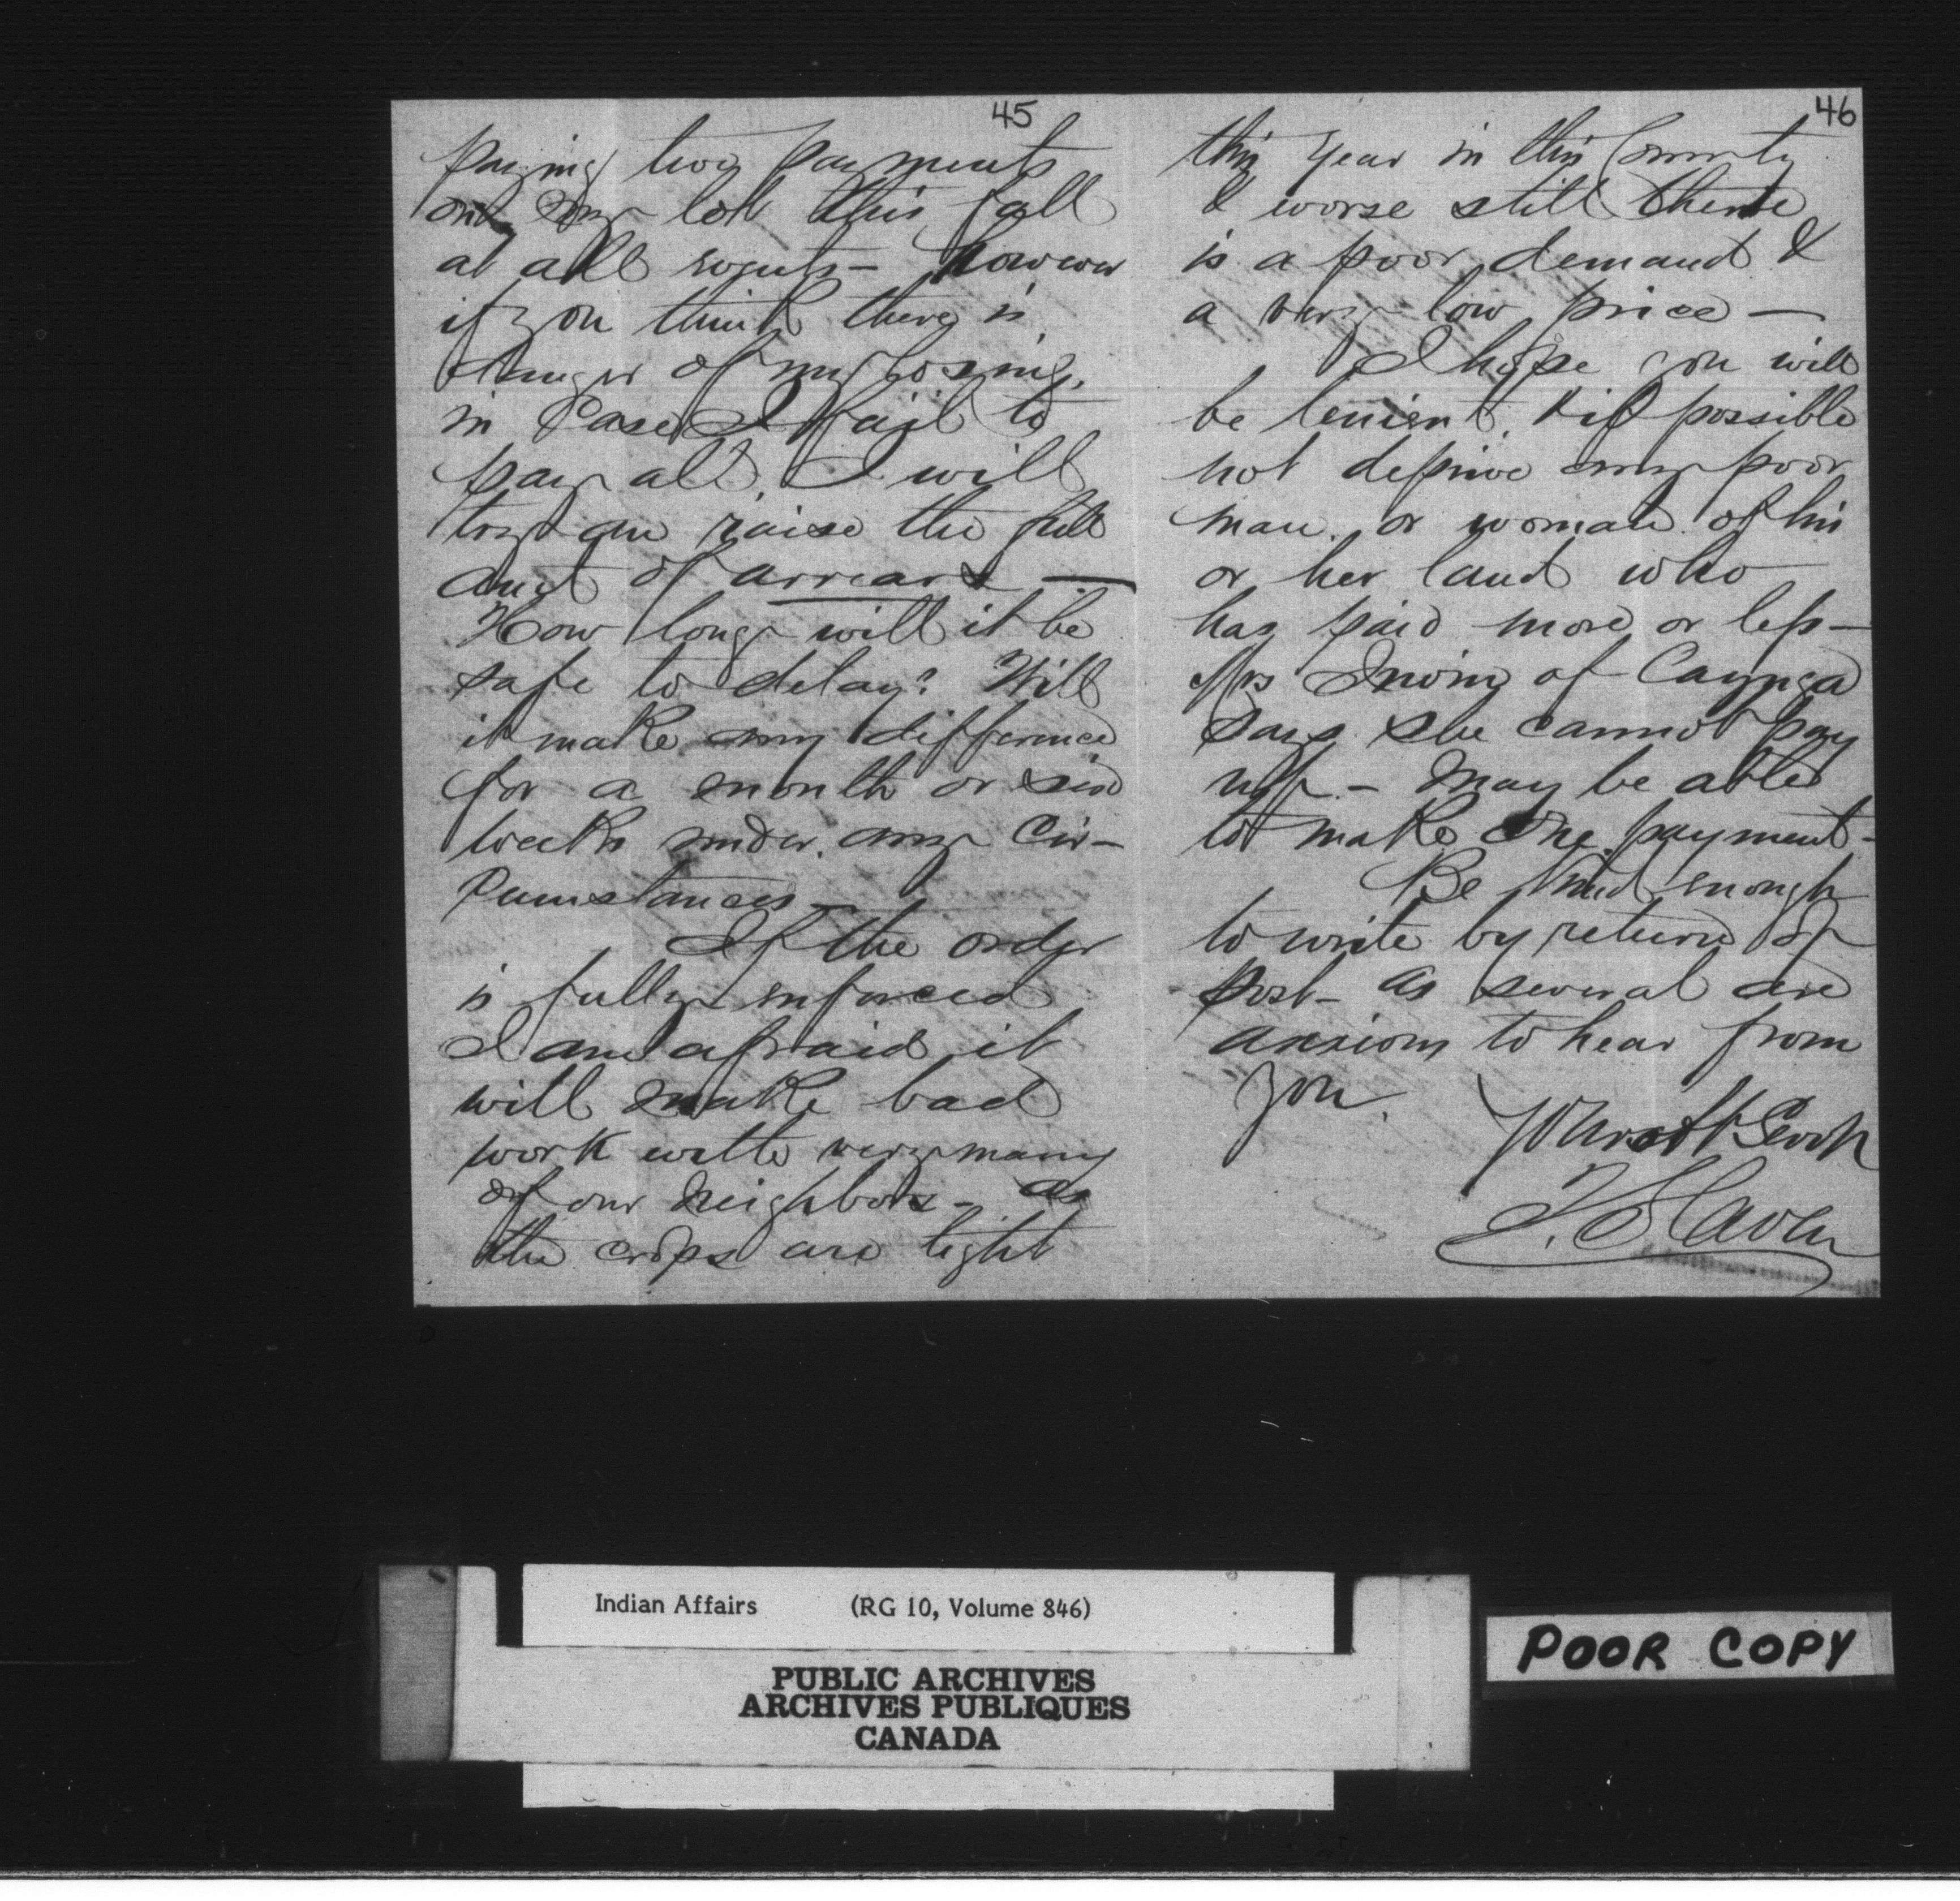 45
paying two payments
on my lot this fall
at all events - however
if you think there is
danger of my losing,
in case I fail to
pay all, I will
try an raise the full
amt of arrears —
How long will it be
safe to delay? Will
it make any difference
for a month or six
weeks under any Cir-
cumstances -
If the order
is fully enforced
I am afraid it
will make bad
work with very many
of our neighbors - as
the crops are light
46
this year in this County
& worse still there
is a poor demand &
a very low price —
I hope you will
be lenient, & if possible
not deprive any poor
man or woman of his
or her land who
has paid more or less -
Mrs Irving of Cayuga
says she cannot pay
up - May be able
to make one payment -
Be kind enough
to write by return of
post - as several are
anxious to hear from
you.
Your obt Servt
Indian Affairs (RG 10, Volume 846)
PUBLIC ARCHIVES
ARCHIVES PUBLIQUES
CANADA
POOR COPY